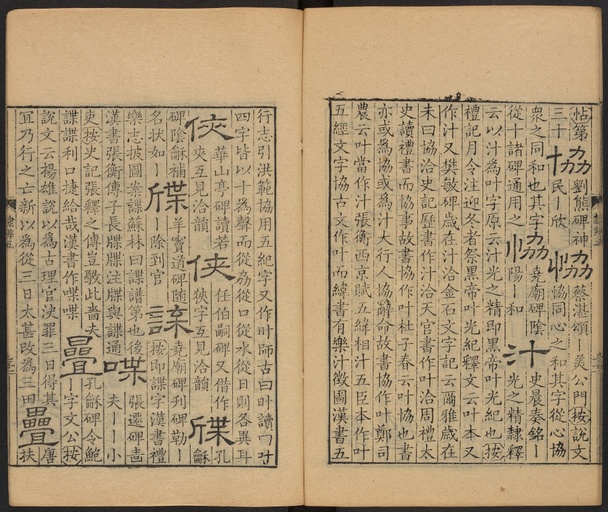 怗第協劉熊碑神協蔡湛頌丨羙公門按說文
三十協民丨欣協同心之和其字從心協
衆之同和也其字協堯廟碑陰汁史晨奏銘丨
從十諸碑通用之丨陽丨和光之精隸釋
云以汁為叶字原云汁光之精即黒帝叶光紀也按
禮記月令注迎冬者祭黒帝叶光紀釋文云叶本又
作汁又樊敏碑歳在汁洽金石文字記云爾雅歳在
未曰協洽史記歴書作汁洽天官書作叶洽周禮太
史讀禮書而協事故書協作叶杜子春云叶協也書
亦或為協或為汁大行人協辭命故書協作叶鄭司
農云叶當作汁張衡西京賦五緯相汁五臣本作叶
五經文字協古文作叶而緯書有樂汁徴圖漢書五
行志引洪範協用五紀字又作旪師古曰旪讀曰叶
四字皆以十為聲而從劦從口從水從日則各異耳
俠華山亭碑讀若俠任伯嗣碑又借作牒孔
夾互見洽韻狹字互見洽韻龢
碑陰龢補牒羊竇道碑隨諜堯廟碑刋碑勒丨
名状如丨丨除到官按即諜字漢書禮
樂志披圖案諜蘇林曰諜譜第也後喋張遷碑嗇
漢書張衡傳子長牒牒注牒與諜通夫丨丨小
吏按史記張釋之傳豈斅此嗇夫疊孔龢碑令鮑
諜諜利口捷給哉漢書作喋喋丨字文公按
說文云揚雄說以為古理官決罪三日得其疊唐
宜乃行之亡新以為從三日太甚改為三田扶